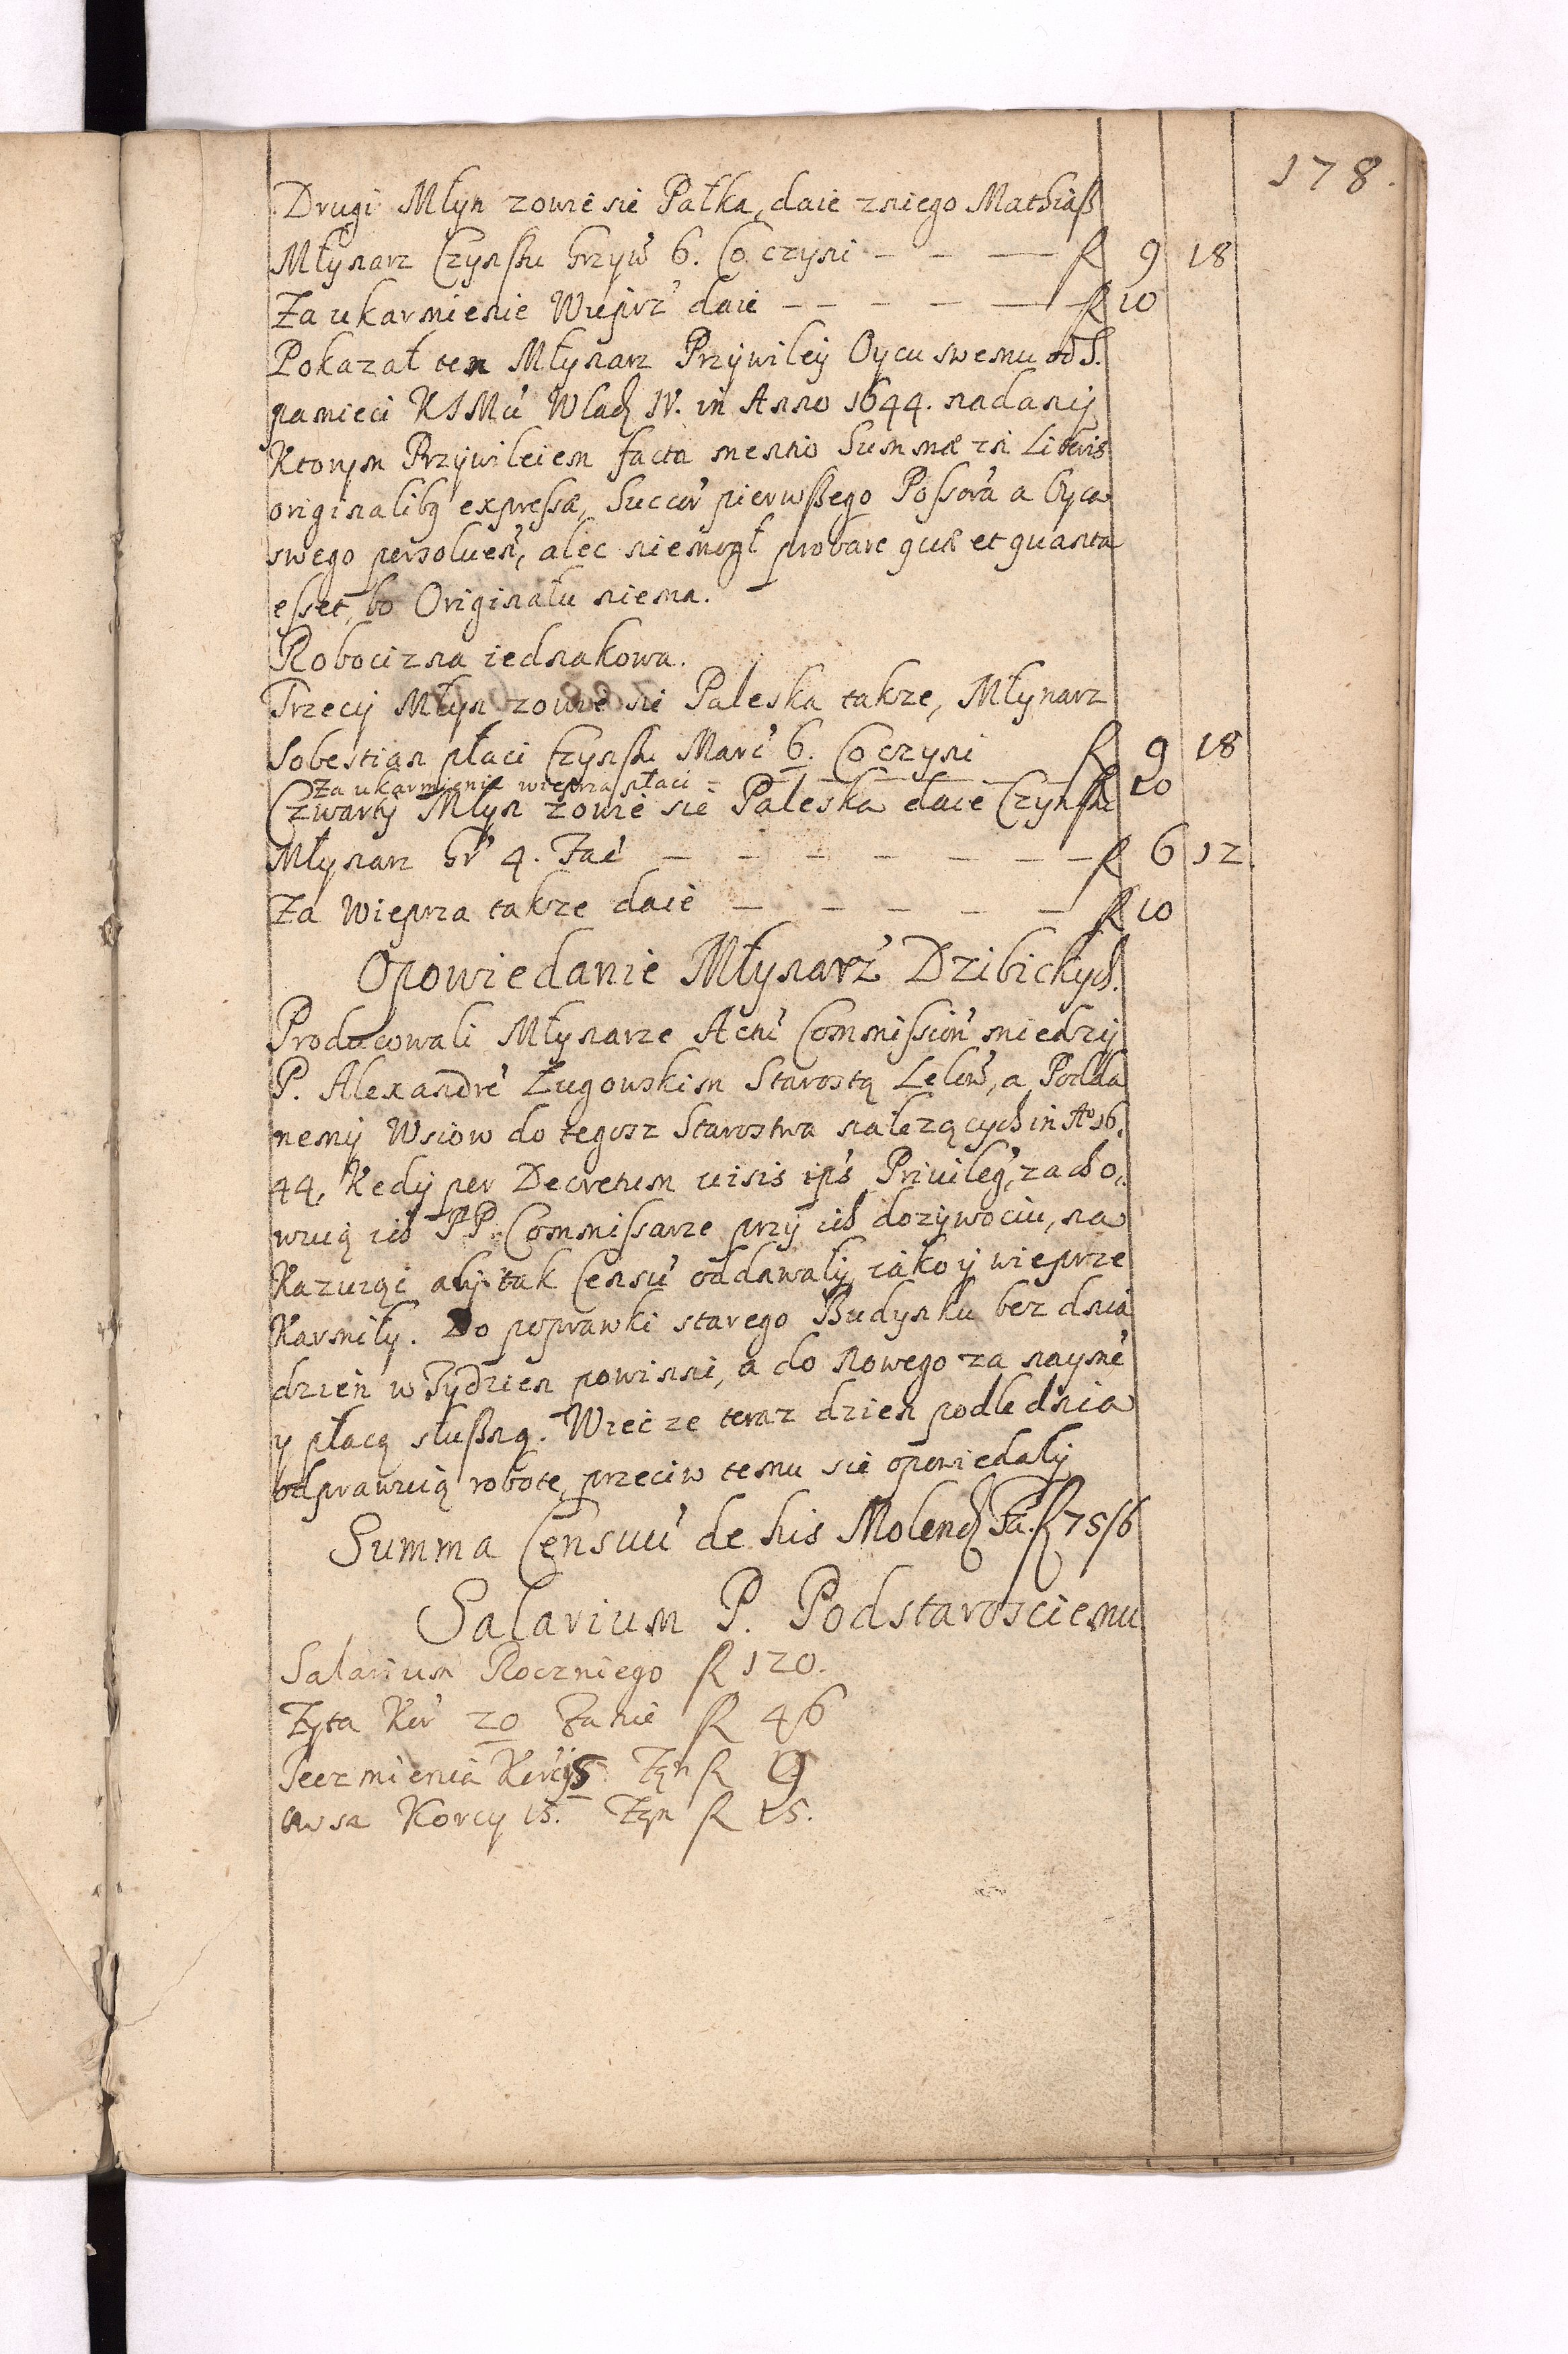 178.
Drugi Młyn zowie sie Pałka, daie zniego Mathiaß
Młynarz Czynßu Grzyw 6. Co czyni — — — f 9 18
Za ukarmienie Wieprz' daie — — — — — f 10
Pokazał ten Młynarz Przywiley Oycu swemu od S.
pamieci KJMci Wlad IV. in Anno 1644. nadany
Ktorym Przywileiem facta mentio Summæ in Literis
originalibq expressæ, Succor' pierwßego Possora a Oyca
swego persoluen', alec niemogł probare quæ et quanta
esset, bo Originału niema.
Robocizna iednakowa.
Trzecy Młyn zowie sie Paleska takze, Młynarz
Sobestian płaci Czynßu Marc' 6. Co czyni f 9 18
Za ukarmienie wieprza płaci — — — — f 10
Czwarty Młyn zowie sie Paleska daie Czynßu
Młynarz Gr' 4. Fac' — — — — — — — f 6 12.
Za Wieprza takze daie — — — — — f 10
Opowiedanie Młynarz' Dzibickych.
Producowali Młynarze Actu' Commission' miedzy
P. Alexandre' Ługowskim Starostą Lelow', a Podda
nemy Wsiow do tegosz Starostwa nalezących in Ao 16.
44. Kedy per Decretum visis ips' Privileg', zacho,,
wuią ich PP. Commissarze przy ich dozywociu, na
Kazuiąc aby tak Censu' oddawaly iako y wieprze
Karmiły. Do poprawki starego Budynku bez dnia
dzien w Tydzien powinni, a do Nowego za nayme'
y płacą słußną. Wiec ze teraz dzien podle dnia
odprawuią robote, przeciw temu sie opowiedaly
Summa Censuu' de his Molend Fa. f 75/6
Salarium P. Podstarosciemu
Salarium Roczniego f 120.
Zyta Kor' 20 Facie f 46
Jeczmienia Korcy 5 Fcn f 9
Owsa Korcy 15. Fcn f 15.